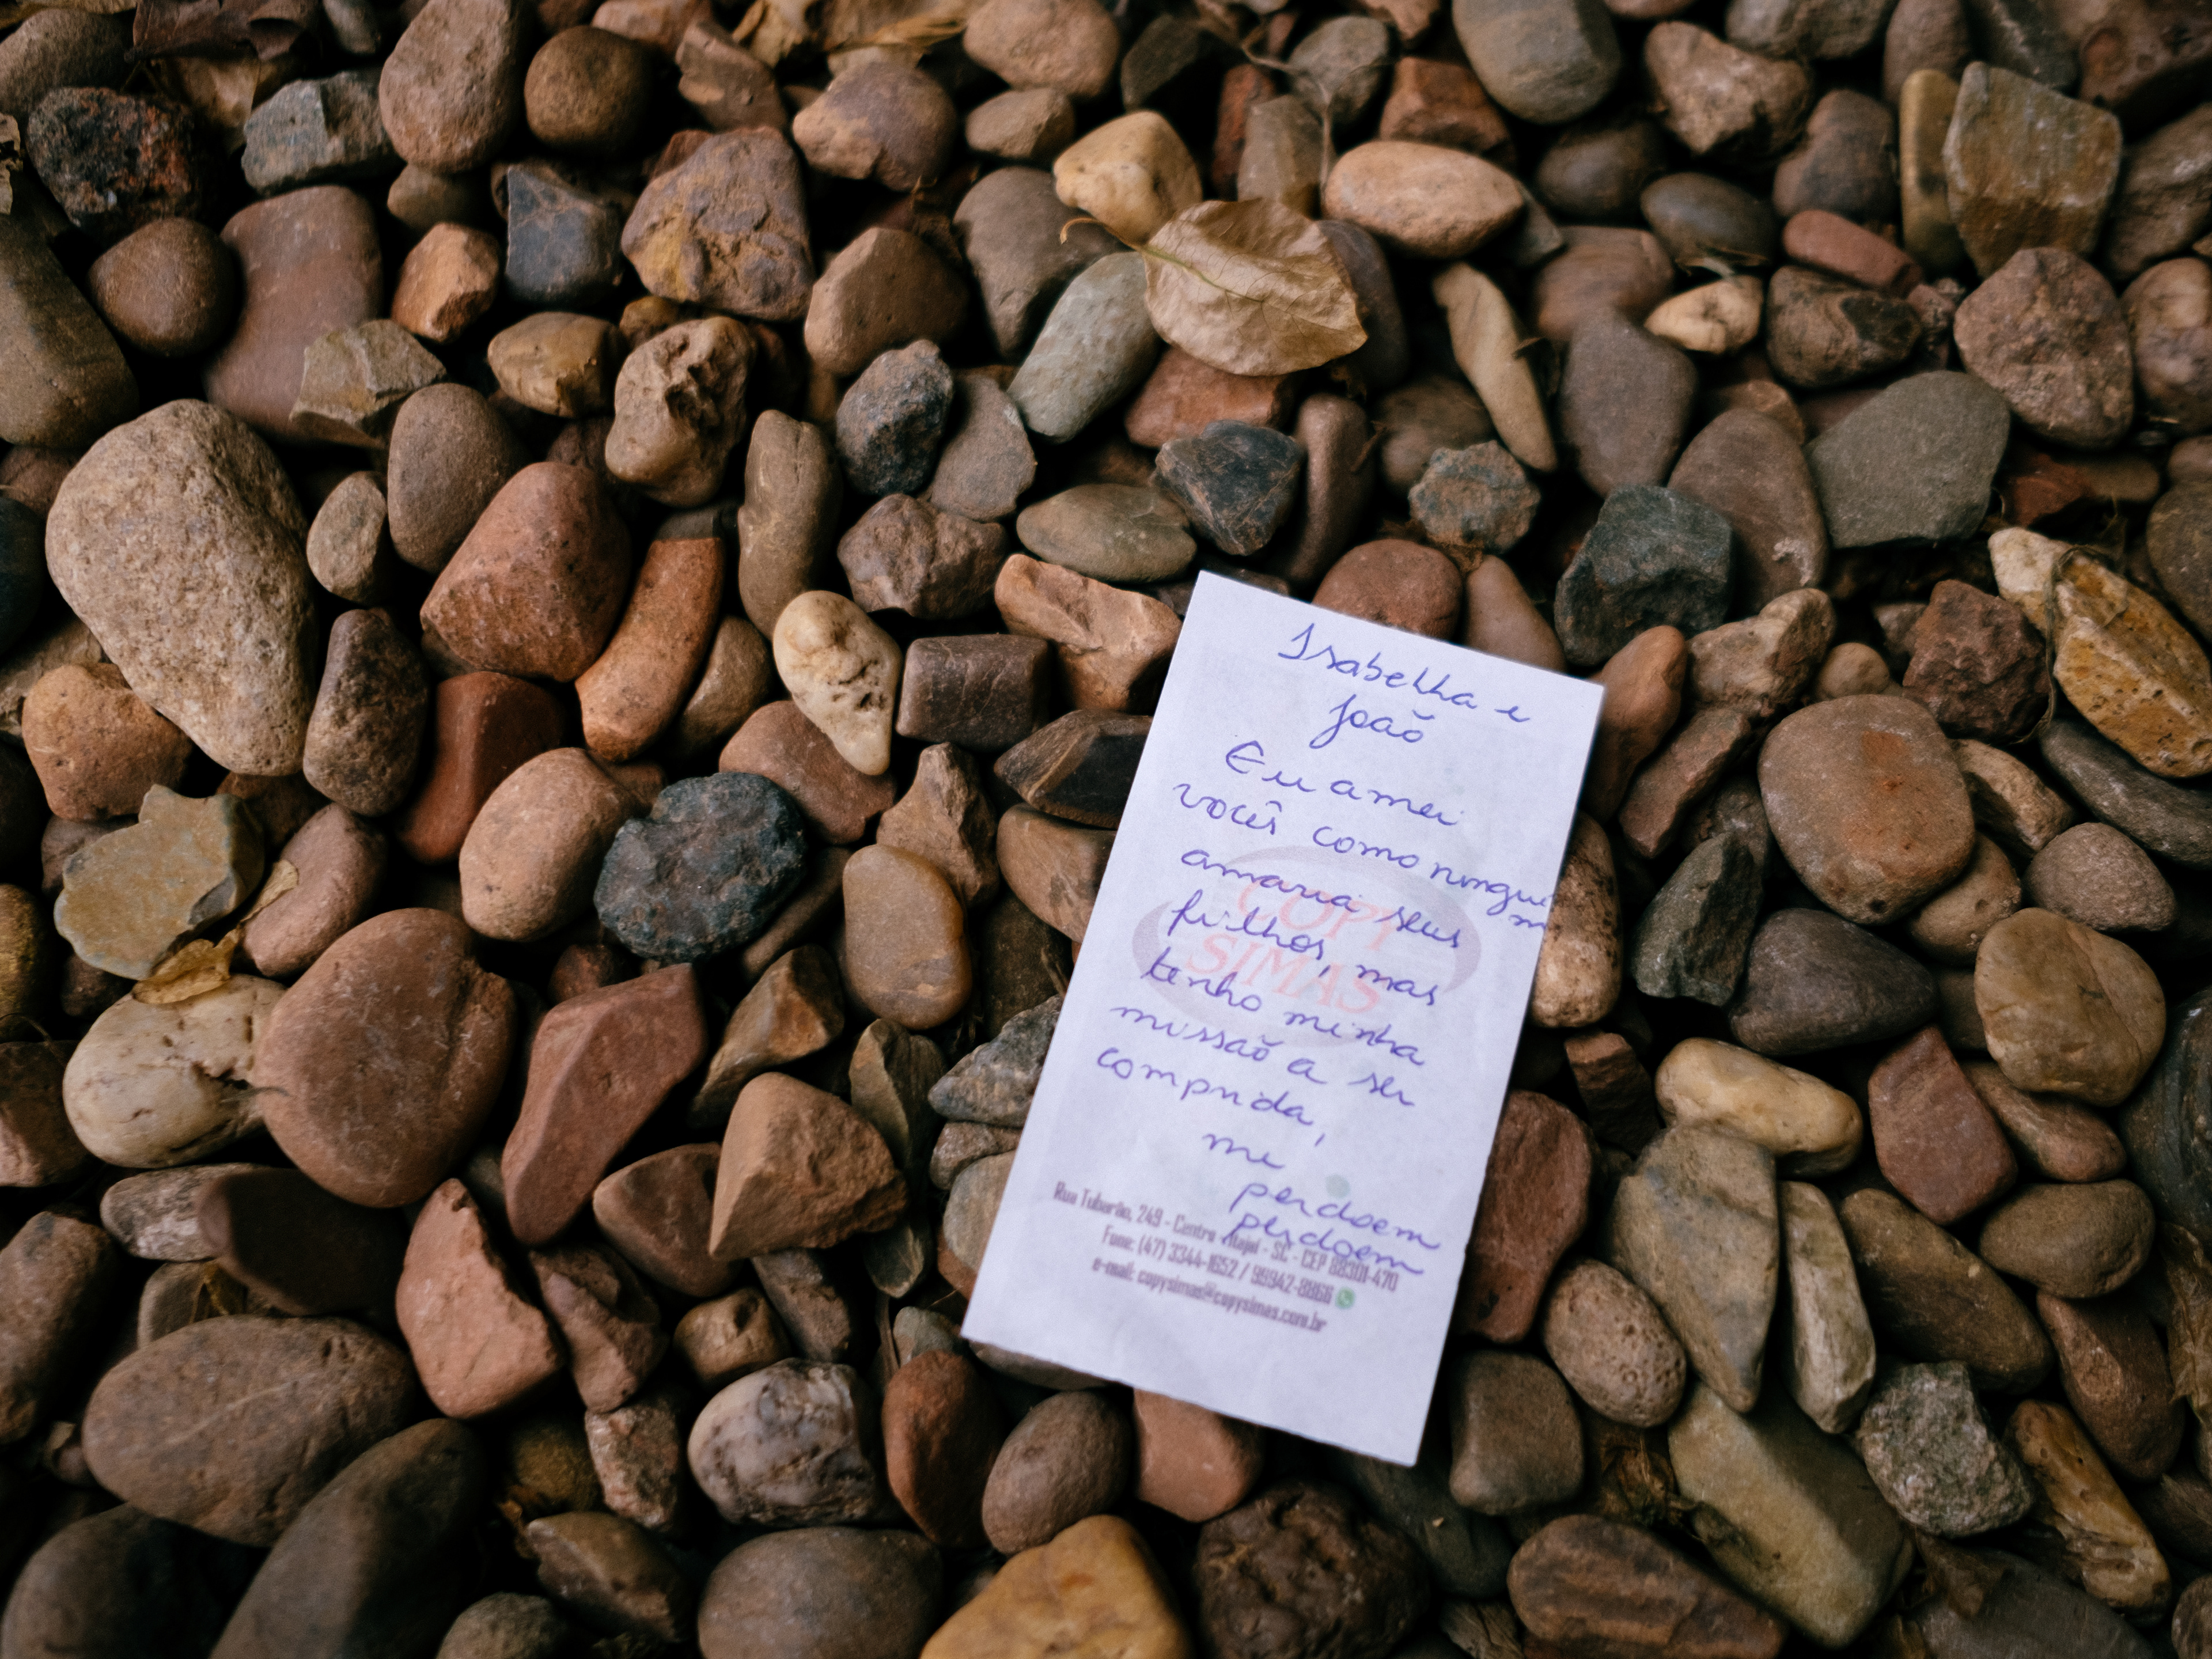 Isabelha e
João
Eu amei
vocês como ningué
m
amaria seus
filhos, mas
tenho minha
missão a ser
comprida,
me
perdoem
perdoem
COPY
SIMAS
Rua Tubarão, 249 - Centro - Itajaí - SC - CEP 88301-470
Fone: (47) 3344-1652 / 99942-8866
e-mail: copysimas@copysimas.com.br